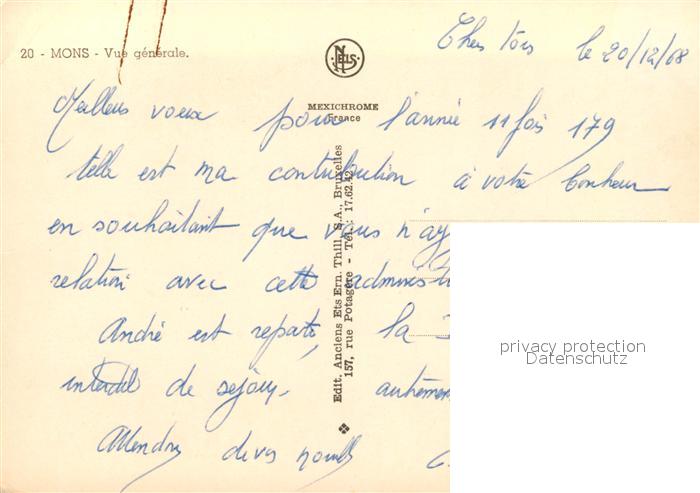 20 - MONS - Vue générale.
NELS
MEXICHROME
France
Edit. Anciens Ets Ern. Thill, S.A., Bruxelles
157, rue Potagère - Tél.: 17.62.42
le 20/12/68
Meilleurs voeux pour l'année 11 fois 179
telle est ma contribution à votre bonheur
en souhaitant que vous n'ay
relation avec cette administ
André est reparti, la
interdit de séjour. autrement
Attendons de vos nouvelles
privacy protection
Datenschutz